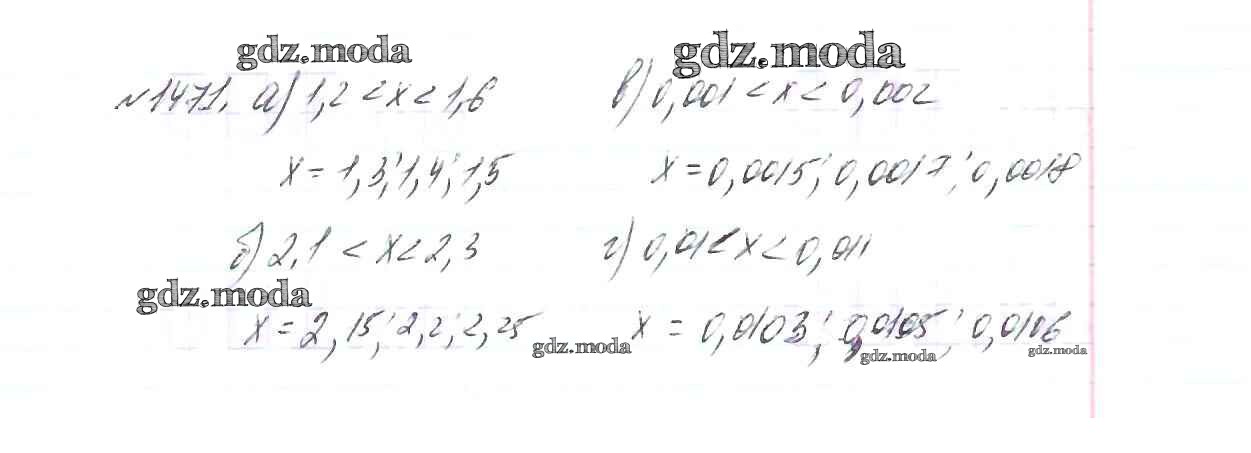 gdz.moda gdz.moda
№1471. а) 1,2 < x < 1,6 в) 0,001 < x < 0,002
x = 1,3; 1,4; 1,5 x = 0,0015; 0,0017; 0,0018
б) 2,1 < x < 2,3 г) 0,01 < x < 0,011
gdz.moda
x = 2,15; 2,2; 2,25 x = 0,0103; 0,0105; 0,0106
gdz.moda gdz.moda gdz.moda